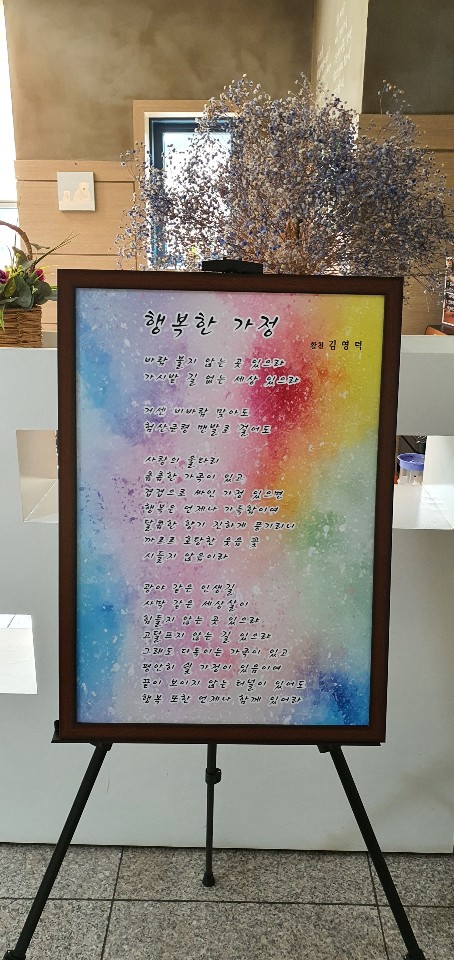 행복한 가정
향천 김영덕
바람 불지 않는 곳 있으랴
가시밭 길 없는 세상 있으랴
거센 비바람 맞아도
험산준령 맨발로 걸어도
사랑의 울타리
올릉한 가족이 있고
겹겹으로 싸인 기정 있으면
행복은 언제나 가득함이여
달콤한 향기 진하게 풍기리니
까르르 호탕한 웃음 꽃
시들지 않음이라
광야 같은 인생길
사막 같은 세상살이
힘들지 않는 곳 있으랴
고달프지 않는 길 있으랴
그래도 다독이는 가족이 있고
평안히 쉴 가정이 있음이여
끝이 보이지 않는 터널이 있어도
행복 또한 언제나 함께 있어라